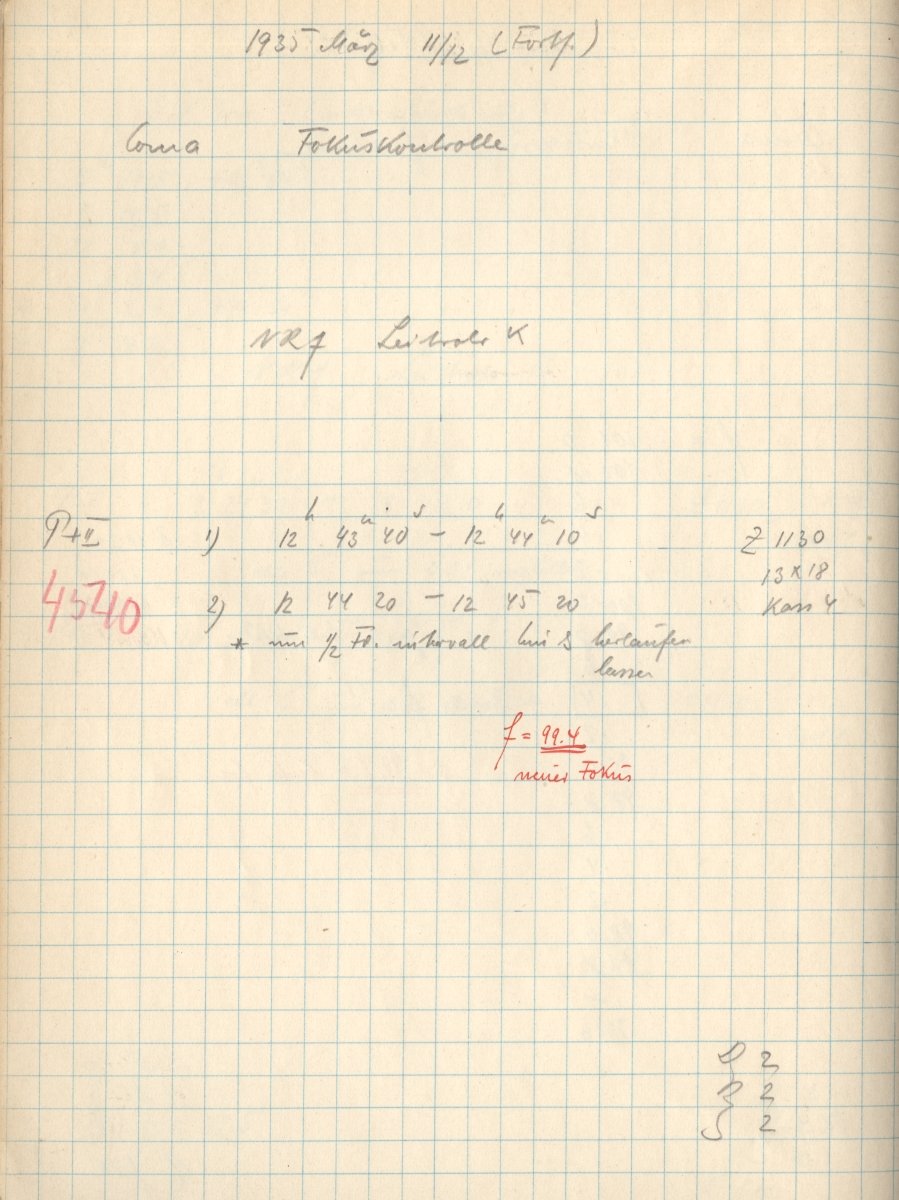 1935 März 11/12 (Forts.)
Coma Fokuskontrolle
NRf Leitrohr K
P+II 1) 12h 43m 40s – 12h 44m 10s Z 1130
13 x 18
4540 2) 12 44 20 – 12 45 20 Kass 4
* um 1/2 Fd. intervall hin & herlaufen
lassen
f = 99.4
neuer Fokus
2
2
2